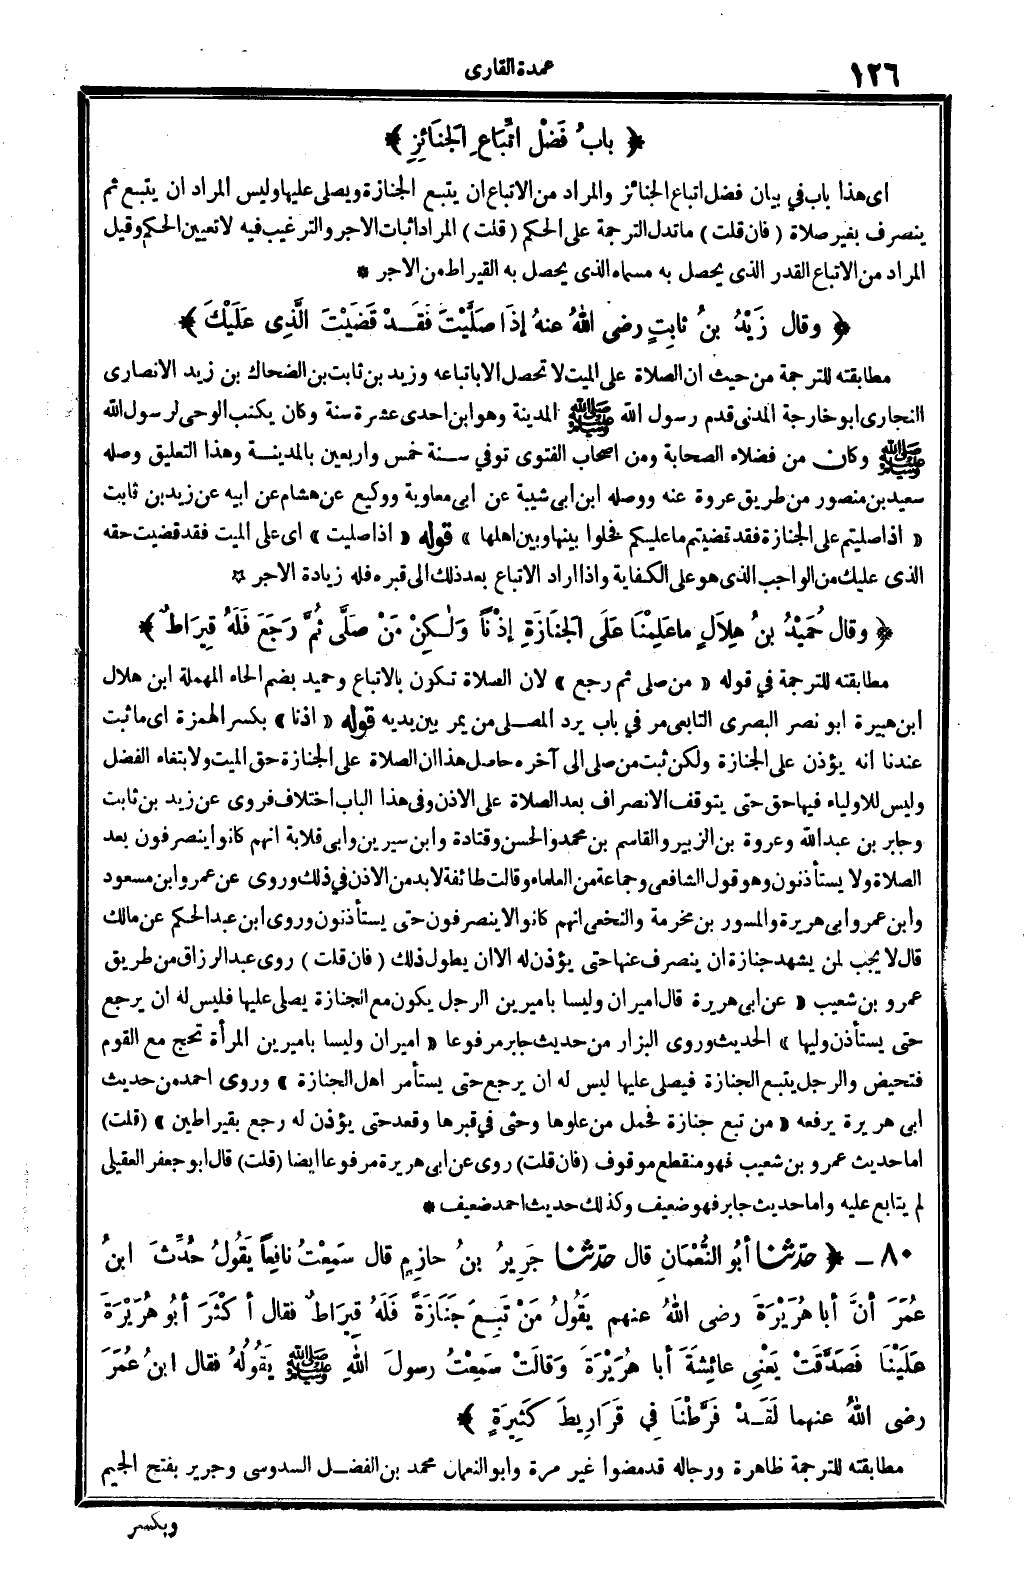 ١٢٦
عمدة القارى
﴿ بابُ فَضْلِ اتِّبَاعِ الجَنَائِزِ ﴾
اى هذا باب في بيان فضل اتباع الجنائز والمراد من الاتباع ان يتبع الجنازة ويصلى عليها وليس المراد ان يتبع ثم
ينصرف بغير صلاة (فان قلت) ما تدل الترجمة على الحكم (قلت) المراد اثبات الاجر والترغيب فيه لا تعيين الحكم وقيل
المراد من الاتباع القدر الذى يحصل به مسماه الذى يحصل به القيراط من الاجر *
﴿ وقال زَيْدُ بنُ ثابِتٍ رضى اللهُ عنهُ إذَا صَلَّيْتَ فَقَـدْ قَضَيْتَ الَّذِى عَلَيْكَ ﴾
مطابقته للترجمة من حيث ان الصلاة على الميت لا تحصل الا باتباعه وزيد بن ثابت بن الضحاك بن زيد الانصارى
النجارى ابو خارجة المدنى قدم رسول الله ﷺ المدينة وهو ابن احدى عشرة سنة وكان يكتب الوحى لرسول الله
ﷺ وكان من فضلاء الصحابة ومن اصحاب الفتوى توفي سـنة خمس واربعين بالمدينـة وهذا التعليق وصله
سعيد بن منصور من طريق عروة عنه ووصله ابن ابى شيبة عن ابى معاوية ووكيع عن هشام عن ابيه عن زيد بن ثابت
« اذا صليتم على الجنازة فقد قضيتم ما عليكم فخلوا بينها وبين اهلها » قوله « اذا صليت » اى على الميت فقد قضيت حقه
الذى عليك من الواجب الذى هو على الكفاية واذا اراد الاتباع بعد ذلك الى قبره فله زيادة الاجر *
﴿ وقال حُمَيْدُ بنُ هِلَالٍ ما عَلِمْنَا عَلَى الجَنَازَةِ إذْنًا وَلٰـكِنْ مَنْ صَلَّى ثُمَّ رَجَعَ فَلَهُ قِيرَاطٌ ﴾
مطابقته للترجمة في قوله « من صلى ثم رجع » لان الصلاة تـكون بالاتباع وحميد بضم الحاء المهملة ابن هلال
ابن هبيرة ابو نصر البصرى التابعى مر في باب يرد المصـلى من يمر بين يديه قوله « اذنا » بكسر الهمزة اى ما ثبت
عندنا انه يؤذن على الجنازة ولكن ثبت من صلى الى آخره حاصل هذا ان الصلاة على الجنازة حق الميت ولابتغاء الفضل
وليس للاولياء فيها حق حتى يتوقف الانصراف بعد الصلاة على الاذن وفى هذا الباب اختلاف فروى عن زيد بن ثابت
وجابر بن عبد الله وعروة بن الزبير والقاسم بن محمد والحسن وقتادة وابن سيرين وابى قلابة انهم كانوا ينصرفون بعد
الصلاة ولا يستأذنون وهو قول الشافعى وجماعة من العلماء وقالت طائفة لا بد من الاذن في ذلك وروى عن عمر وابن مسعود
وابن عمر وابى هريرة والمسور بن مخرمة والنخعى انهم كانوا لا ينصرفون حتى يستأذنون وروى ابن عبد الحكم عن مالك
قال لا يجب لمن يشهد جنازة ان ينصرف عنها حتى يؤذن له الا ان يطول ذلك (فان قلت) روى عبد الرزاق من طريق
عمرو بن شعيب « عن ابى هريرة قال اميران وليسا باميرين الرجل يكون مع الجنازة يصلى عليها فليس له ان يرجع
حتى يستأذن وليها » الحديث وروى البزار من حديث جابر مرفوعا « اميران وليسا باميرين المرأة تحج مع القوم
فتحيض والرجل يتبع الجنازة فيصلى عليها ليس له ان يرجع حتى يستأمر اهل الجنازة » وروى احمد من حديث
ابى هريرة يرفعه « من تبع جنازة فحمل من علوها وحثى في قبرها وقعد حتى يؤذن له رجع بقيراطين » (قلت)
اما حديث عمرو بن شعيب فهو منقطع موقوف (فان قلت) روى عن ابى هريرة مرفوعا ايضا (قلت) قال ابو جعفر العقيلى
لم يتابع عليه واما حديث جابر فهو ضعيف وكذلك حديث احمد ضعيف *
٨٠ ـ ﴿ حدّثنا أبُو النُّعْمَانِ قال حدّثنا جَرِيرُ بنُ حازِمٍ قال سَمِعْتُ نافِعًا يَقُولُ حُدِّثَ ابنُ
عُمَرَ أنَّ أبا هُرَيْرَةَ رضى اللهُ عنهم يَقُولُ مَنْ تَبِعَ جَنَازَةً فَلَهُ قِيرَاطٌ فقال أكْثَرَ أبُو هُرَيْرَةَ
عَلَيْنَا فَصَدَّقَتْ يَعْنِى عائِشَةَ أبا هُرَيْرَةَ وَقالَتْ سَمِعْتُ رسولَ اللهِ ﷺ يَقُولُهُ فقال ابنُ عُمَرَ
رضى اللهُ عنهما لَقَـدْ فَرَّطْنَا فِي قَرَارِيطَ كَثِيرَةٍ ﴾
مطابقته للترجمة ظاهرة ورجاله قد مضوا غير مرة وابو النعمان محمد بن الفضـل السدوسى وجرير بفتح الجيم
وبكسر